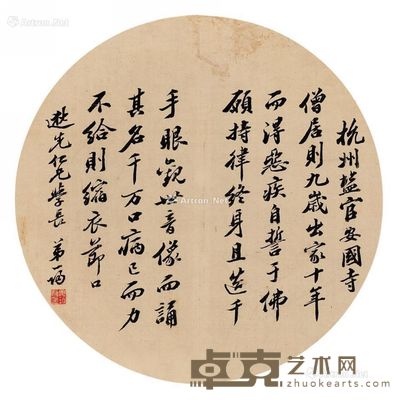 杭州鹽官安國寺
僧居則九歲出家十年
而得惡疾自誓于佛
願持律終身且造千
手眼觀世音像而誦
其名千万口病已而力
不給則縮衣節口
先仁兄學長 弟
Artron.Net
卓克艺术网
www.zhuokearts.com